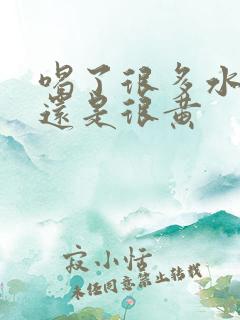 喝了很多水
還是很黄
寂小恬
未经同意禁止转载